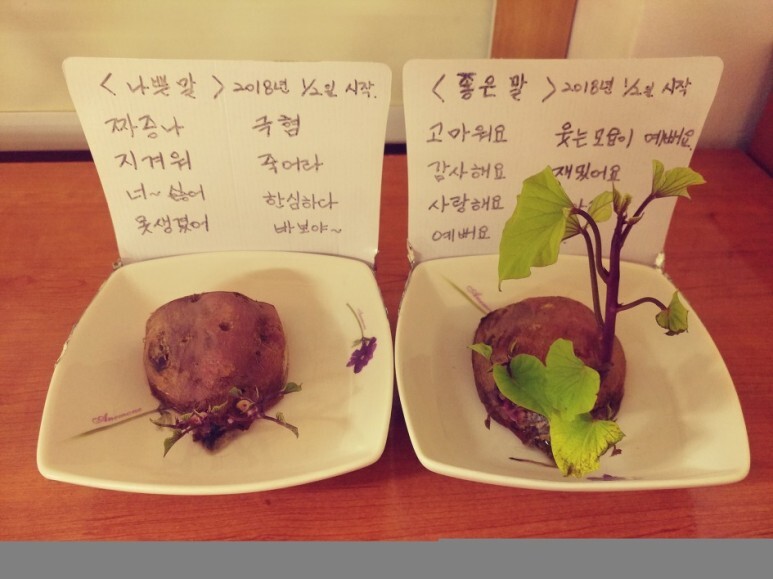 < 나쁜말 > 2018년 1/2일 시작.
짜증나 극혐
지겨워 죽어라
너~ 싫어 한심하다
못생겼어 바보야~
< 좋은 말 > 2018년 1/2일 시작
고마워요 웃는모습이 예뻐요.
감사해요 재밌어요
사랑해요
예뻐요